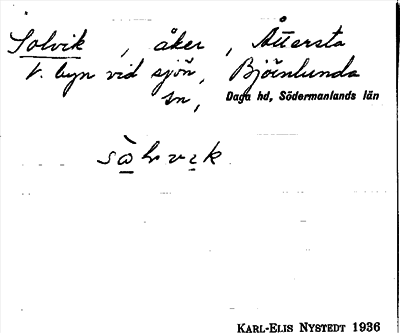 Solvik, åker, Åttersta
V. byn vid sjön, Björnlunda
sn, Daga hd, Södermanlands län
KARL-ELIS NYSTEDT 1936